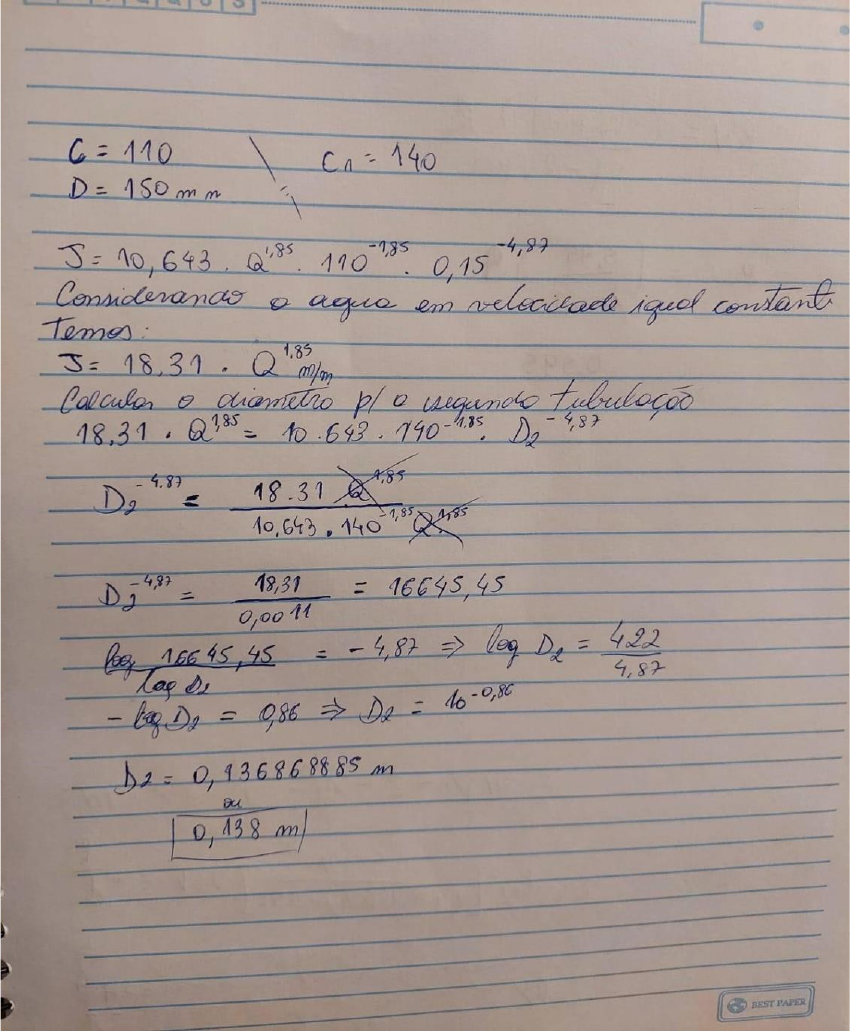 C = 110
C₁ = 140
D = 150 mm
J = 10,643 . Q^1,85 . 110^-1,85 . 0,15^-4,87
Considerando a agua em velocidade igual constante
Temos:
J = 18,31 . Q^1,85 m/m
Calcular o diametro p/ a segunda tubulação
18,31 . Q^1,85 = 10.643 . 140^-1,85 . D₂^-4,87
D₂^-4.87 = 18.31 Q^1,85
10,643 . 140^-1,85 Q^1,85
D₂^-4,87 = 18,31 = 16645,45
0,0011
log 16645,45 = - 4,87 ⇒ log D₂ = 422
log D₂ 4,87
- log D₂ = 0,86 ⇒ D₂ = 10^-0,86
D₂ = 0,136868885 m
ou
0,138 m
BEST PAPER